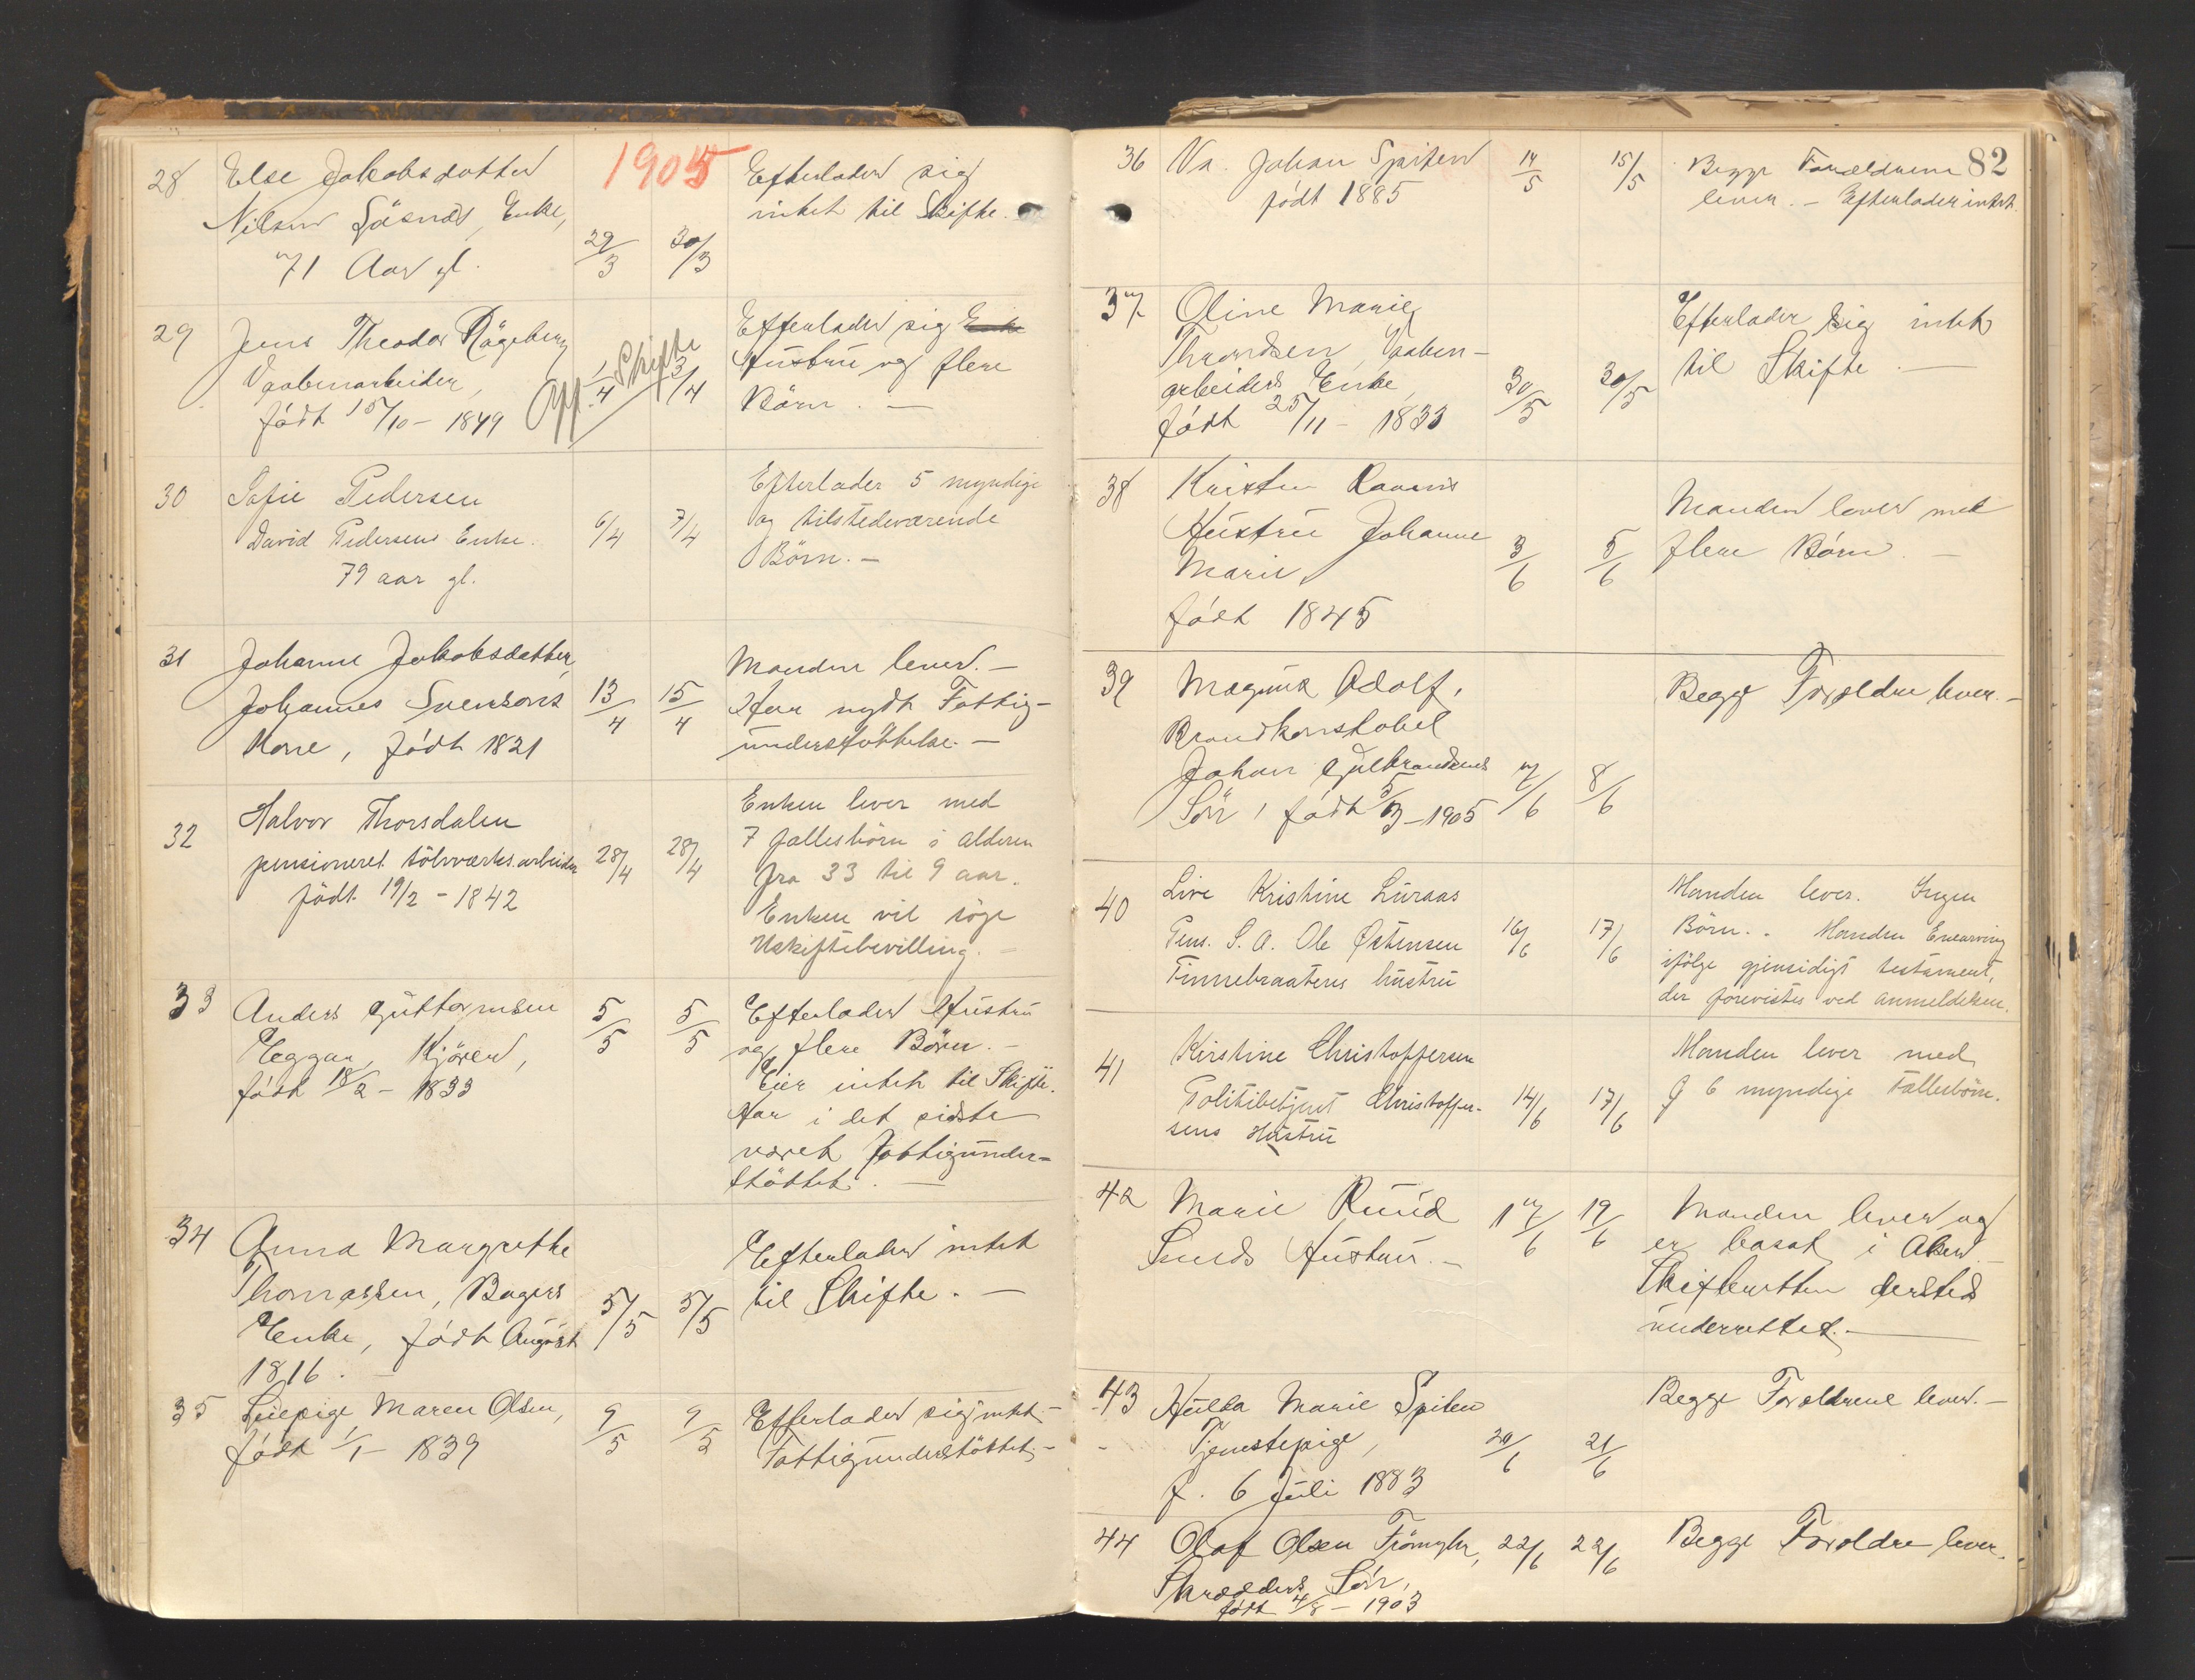 1905
28 Else Jakobsdatter
Nilsen , Enke,
71 Aar gl. 29/3 30/3
Efterlader sig
intet til Skifte.
29 Jens Theodor Rågeberg
Vaabenarbeider,
født 15/10 - 1849
Opg. Skifte
1/4 3/4
Efterlader sig
Hustru og flere
Børn. —
30 Sofie Pedersen
David Pedersens Enke.
79 aar gl.
6/4 7/4
Efterlader 5 myndige
og tilstedeværende
Børn. —
31 Johanne Jakobsdatter,
Johannes Svensons
Kone, født 1821
13/4 15/4
Manden lever. —
Har nydt Fattig-
understøttelse. —
32 Halvor Thorsdalen
pensioneret sölvværks.arbeider
födt 19/2 - 1842
28/4 28/4
Enken lever med
7 fællesbörn i alderen
fra 33 til 9 aar.
Enken vil söge
Uskiftebevilling. —
33 Anders Guttormsen
Eggar, Kjøren,
født 18/2 - 1833
5/5 5/5
Efterlader Hustru
og flere Børn. —
Eier intet til Skifte.
Har i det sidste
været fattigunder-
støttet. —
34 Anna Margrethe
Thomassen, Bagers
Enke, født August
1816. —
5/5 5/5
Efterlader intet
til Skifte. —
35 Leiepige Maren Olsen,
født 1/1 - 1839
9/5 9/5
Efterlader sig intet. —
Fattigunderstøttet. —
82
36 Johan Spiten
født 1885
14/5 15/5
Begge Forældrene
lever. — Efterlader intet.
37 Oline Marie
Throndsen, Vaaben-
arbeiders Enke,
født 25/11 - 1833
30/5 30/5
Efterlader sig intet
til Skifte. —
38 Kristen
Hustru Johanne
Marie,
født 1845
3/6 5/6
Manden lever med
flere Børn. —
39 Magnus Adolf,
Brandkonstabel
Johan Gulbrandsens
Søn, født 5/3 - 1905
7/6 8/6
Begge Forældre lever. —
40 Live Kristine Luraas
Pens. S. A. Ole Østensen
Finnebraatens hustru
16/6 17/6
Manden lever. Ingen
Børn. - Manden Enearving
ifölge gjensidigt testament,
der forevistes ved anmeldelsen.
41 Kirstine Christoffersen
Politibetjent Christoffer-
sens Hustru
14/6 17/6
Manden lever med
6 myndige Fællesbörn.
42 Marie Ruud
Hustru. —
17/6 19/6
Manden lever og
er bosat i Aker. —
Skifteretten dersteds
underrettet. —
43 Hulda Marie Spiten
Tjenestepige,
f. 6 Juli 1883
20/6 21/6
Begge Forældrene lever. —
44 Olaf Olsen Frömyhr,
Skrædders Søn,
født 4/8 - 1903
22/6 22/6
Begge Forældre lever.